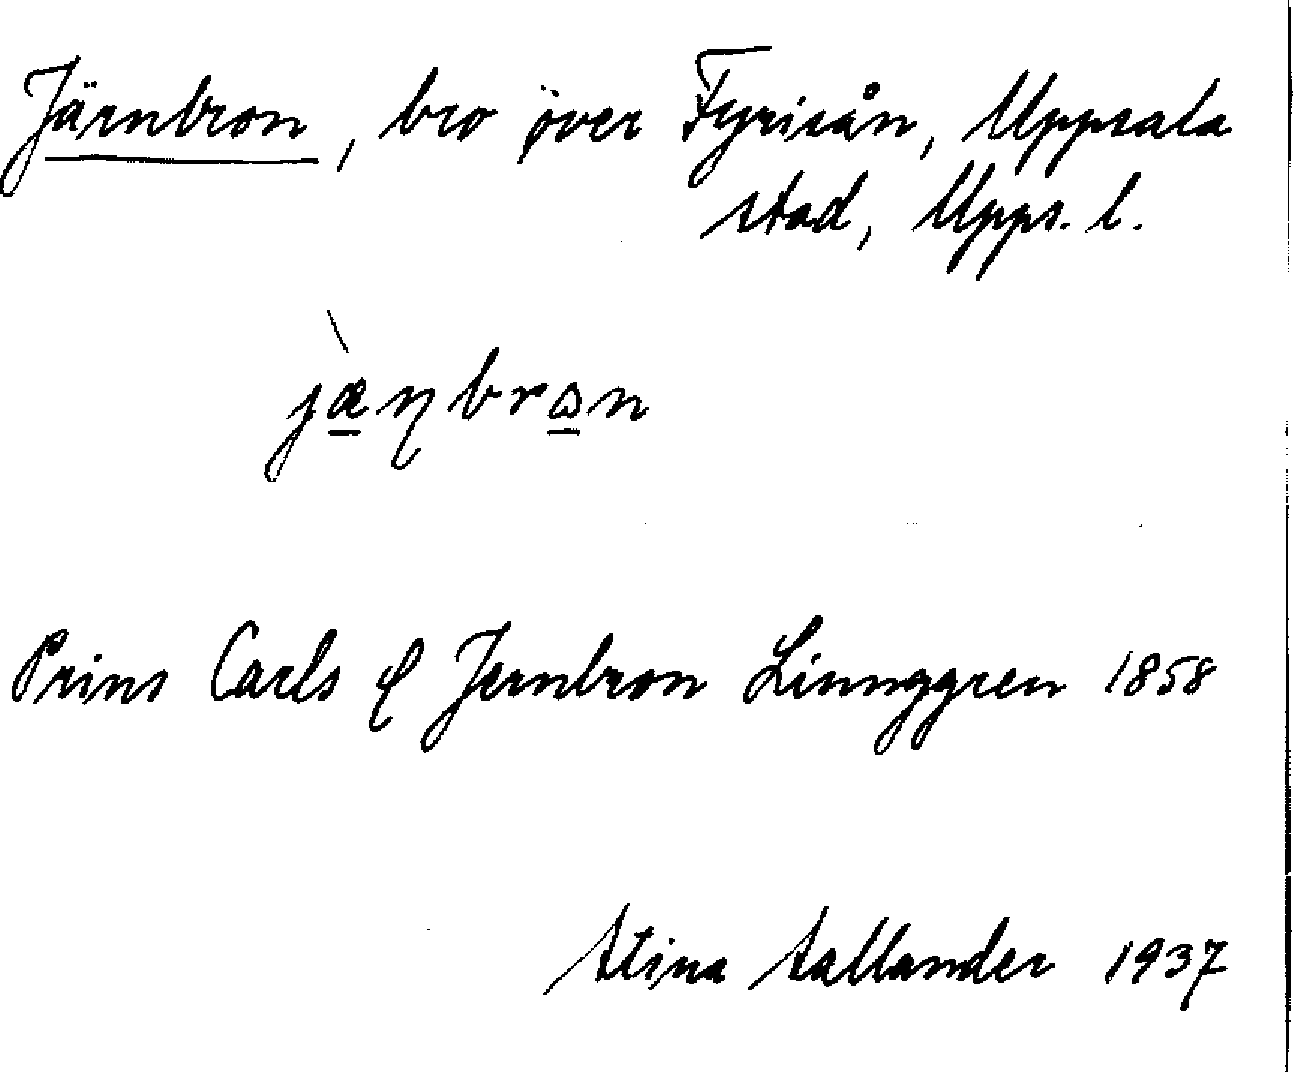 Järnbron, bro över Fyrisån, Uppsala
stad, Upps. l.
jæ̠̀ɳbrω̠n
Prins Carls l. Jernbron Linnggren 1858
Stina Sallander 1937